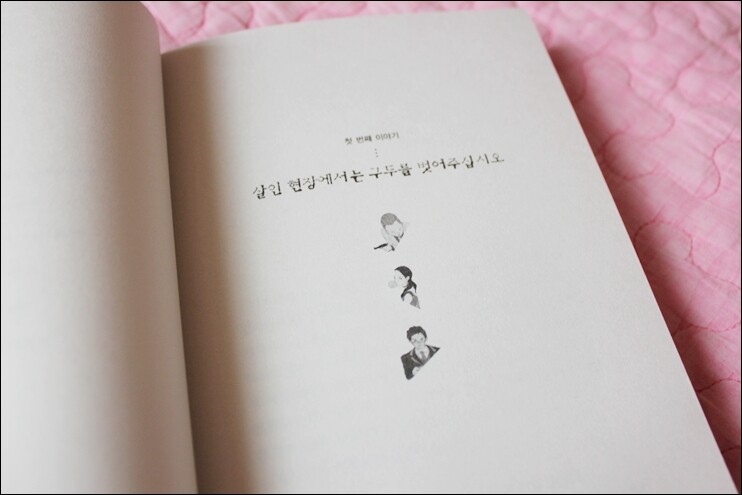 첫 번째 이야기
⋮
살인 현장에서는 구두를 벗어주십시오